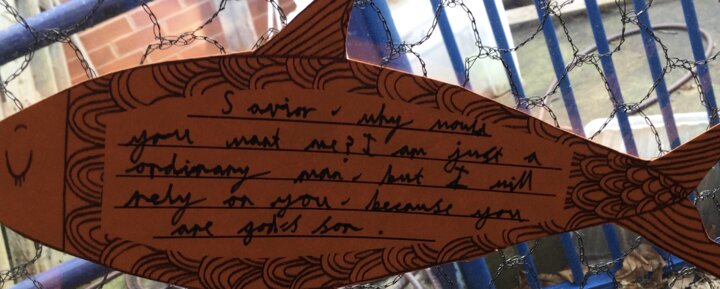 Savior - why would
you want me? I am just a
ordinary man - but I will
rely on you - because you
are god-s son.